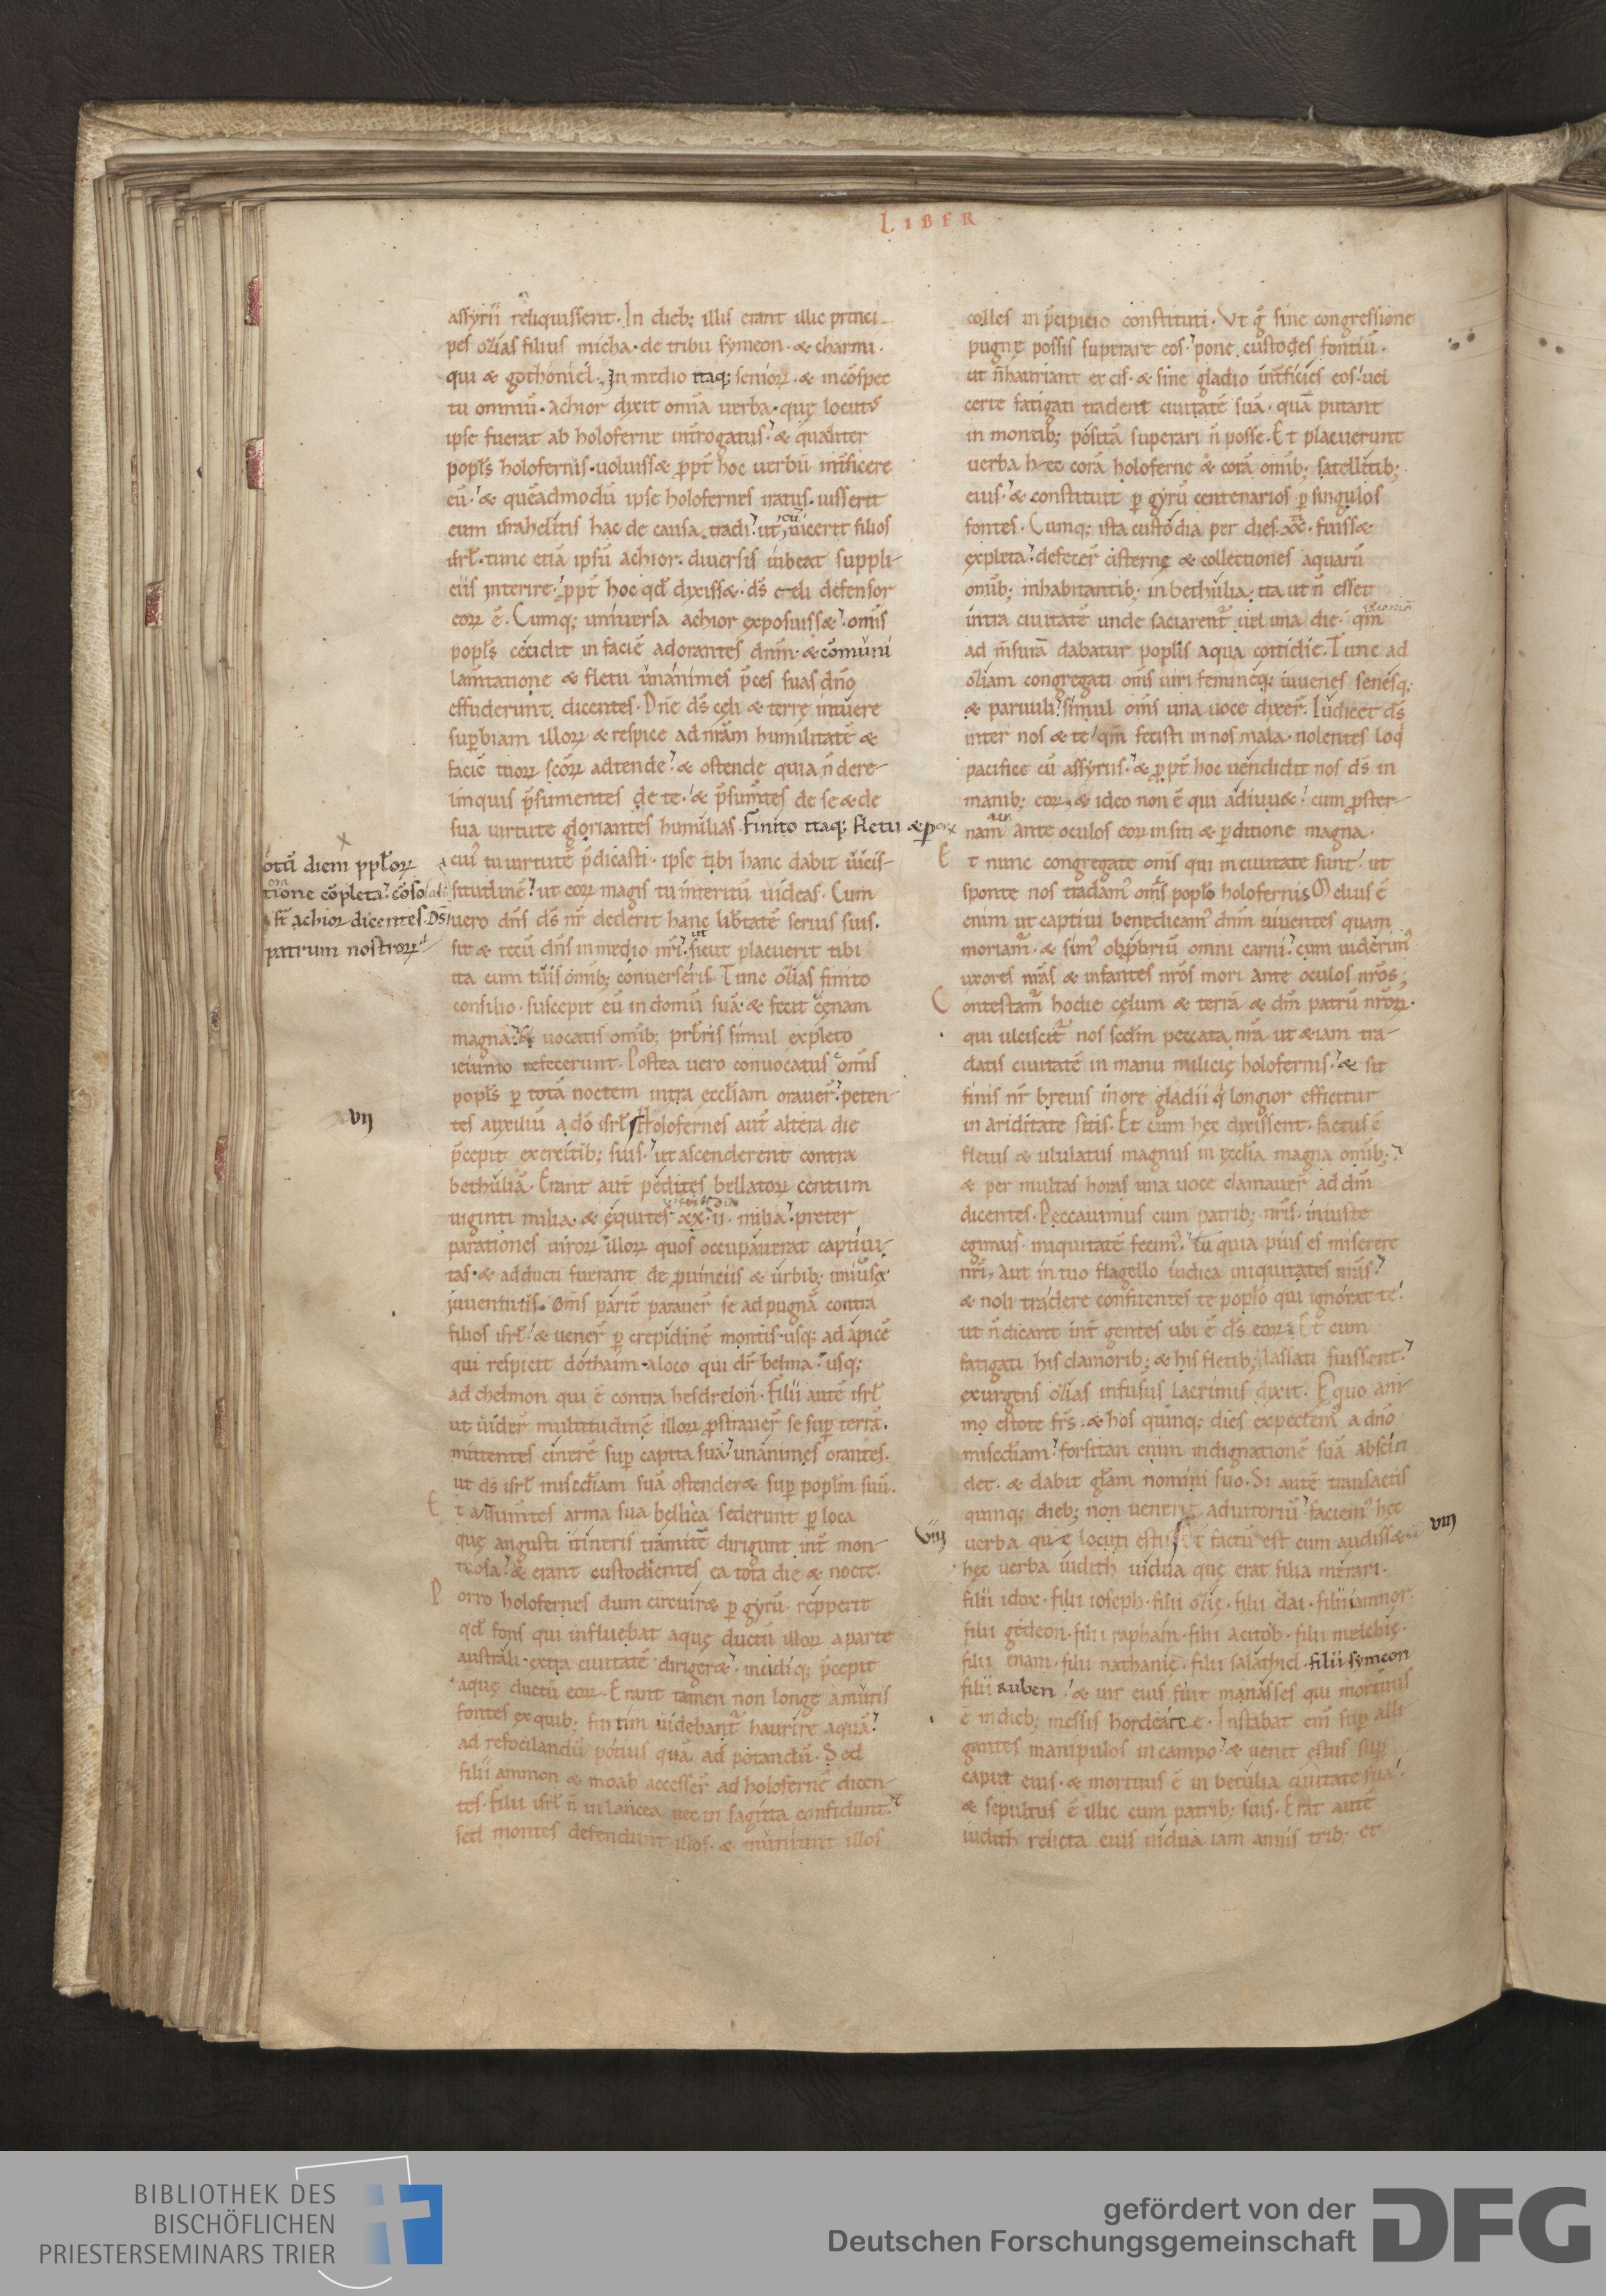 LIBER
assyrii reliquissent. In dieb; illis erant illic princi-
pes ozias filius micha. de tribu symeon. & charmi.
qui & gothoniel. In medio itaq; senioꝝ. & in cōspec
tu omniū. achior dixit omīa uerba. quę locutꝰ
ipse fuerat ab holoferne int̄rogatus. & qualiter
popl̄s holofernis. uoluiss& ꝓpt̄ hoc uerbū int̄ficere
eū. & quēadmodū ipse holofernes iratus. iusserit
eum israhelitis hac de causa tradi. ut, cū uicerit filios
isrl̄. tunc etiā ipsū achior. diuersis iubeat suppli-
ciis interire. ꝓpt̄ hoc qd̄ dixiss&. ds̄ cęli defensor
eoꝝ ē. Cumq; uniuersa achior exposuiss&. omīs
popl̄s cecidit in faciē adorantes dnm̄. & cōmuni
lam̄tatione & fletu unanimes p̄ces suas dn̄o
effuderunt. dicentes. Dn̄e ds̄ cęli & terrę intuere
sup̄biam illoꝝ & respice ad nr̄am humilitatē &
faciē tuoꝝ sc̄oꝝ adtende. & ostende quia n̄ dere-
linquis p̄sumentes de te. & p̄sum̄tes de se & de
sua uirtute gloriantes humilias. Finito itaq; fletu & p
x
otū diem ppl̄oꝝ
ora
tione cōpleta. cōsolati
st̄ achior dicentes. Ds̄
patrum nostroꝝ
cuiꝰ tu uirtutē p̄dicasti. ipse tibi hanc dabit uicis-
situdinē. ut eoꝝ magis tu interitū uideas. Cum
uero dn̄s ds̄ nr̄ dederit hanc libt̄atē seruis suis.
sit & tecū dn̄s in medio nr̄i. ut sicut placuerit tibi
ita cum tuis omīb; conuerseris. Tunc ozias finito
consilio. suscepit eū in domū suā. & fecit cęnam
magnā. & uocatis omīb; prb̄ris simul expleto
ieiunio refecerunt. Postea uero conuocatus omīs
popl̄s ꝑ totā noctem intra eccl̄iam orauer̄. peten-
vii
tes auxiliū a dō isrl̄. Holofernes aut̄ altera die
p̄cepit exercitib; suis. ut ascenderent contra
bethuliā. Erant aut̄ pedites bellatoꝝ centum
uiginti milia. & equites xx. ii. milia. preter
parationes uiroꝝ illoꝝ quos occupauerat captiui-
tas. & adducti fuerant de ꝓuinciis & urbib; uniuersę
iuuentutis. Om̄s parit̄ parauer̄ se ad pugnā contra
filios isrl̄. & uener̄ ꝑ crepidinē montis. usq; ad apicē
qui respicit dothaim. a loco qui dr̄ belma. usq;
ad chelmon qui ē contra hesdrelon. Filii autē isrl̄
ut uider̄ multitudinē illoꝝ ꝓstrauer̄ se sup̄ terrā.
mittentes cinerē sup̄ capita sua. unanimes orantes.
ut ds̄ isrl̄ misc̄diam suā ostender& sup̄ popl̄m suū.
E
t assum̄tes arma sua bellica sederunt ꝑ loca
quę angusti itineris tramitē dirigunt int̄ mon-
tuosa. & erant custodientes ea tota die & nocte.
P
orro holofernes dum circuir& ꝑ gyrū. repperit
qd̄ fons qui influebat aquę ductū illoꝝ a parte
australi. extra ciuitatē diriger&. incidiq; p̄cepit
aquę ductū eoꝝ. Erant tamen non longe a muris
fontes ex quib; furtim uidebant̄ haurire aquā.
ad refocilandū potius quā ad potandū. Sed
filii ammon & moab accesser̄ ad holofernē dicen-
tes. Filii isrl̄ n̄ in lancea nec in sagitta confidunt.
sed montes defendunt illos. & muniunt illos
colles in p̄cipicio constituti. Vt g̊ sine congressione
pugnę possis sup̄rare eos. pone custodes fontiū.
ut n̄ hauriant ex eis. & sine gladio int̄ficies eos. uel
certe fatigati tradent ciuitatē suā. quā putant
in montib; positā superari n̄ posse. Et placuerunt
uerba hęc corā holoferne & corā omīb; satellitib;
eius. & constituit ꝑ gyrū centenarios ꝑ singulos
fontes. Cumq; ista custodia per dies. xx. fuiss&
expleta. defecer̄ cisternę & collectiones aquarū
omīb; inhabitantib; in bethulia. ita ut n̄ esset
intra ciuitatē unde saciarent̄ uel una die. qm̄
ad m̄surā dabatur popl̄is aqua cottidie. Tunc ad
oziam congregati om̄s uiri feminęq; iuuenes senesq;
& paruuli. simul om̄s una uoce dixer̄. Iudicet ds̄
inter nos & te. qm̄ fecisti in nos mala. nolentes loq̇
pacifice cū assyriis. & ꝓpt̄ hoc uendidit nos ds̄ in
manib; eoꝝ. & ideo non ē qui adiuu&. cum ꝓster-
namur ante oculos eoꝝ in siti & ꝑditione magna.
E
t nunc congregate om̄s qui in ciuitate sunt. ut
sponte nos tradamꝰ om̄s popl̄o holofernis. Melius ē
enim ut captiui benedicamꝰ dnm̄ uiuentes quam
moriam̄. & simꝰ obꝓbriū omni carni. cum uiderimꝰ
uxores nr̄as & infantes nr̄os mori ante oculos nr̄os;
C
ontestam̄ hodie cęlum & terrā & dm̄ patrū nr̄oꝝ.
qui ulciscit̄ nos scdm̄ peccata nr̄a ut & iam tra-
datis ciuitatē in manu milicię holofernis. & sit
finis nr̄ breuis in ore gladii q̇ longior efficitur
in ariditate sitis. Et cum hęc dixissent. factus ē
fletus & ululatus magnus in eccl̄ia magna omīb;
& per multas horas una uoce clamauer̄ ad dm̄
dicentes. Peccauimus cum patrib; nr̄is. iniuste
egimus. iniquitatē fecimꝰ. tu quia pius es miserere
nr̄i. aut in tuo flagello iudica iniquitates nr̄as.
& noli tradere confitentes te popl̄o qui ignorat te.
ut n̄ dicant int̄ gentes ubi ē ds̄ eoꝝ. Et cum
fatigati his clamorib; & his fletib; lassati fuissent.
exurgens ozias infusus lacrimis dixit. Equo ani-
mo estote fr̄s. & hos quinq; dies expectemꝰ a dn̄o
misc̄diam. forsitan enim indignationē suā abscin
det. & dabit gl̄am nomini suo. Si autē transactis
quinq; dieb; non uenerit adiutoriū. faciemꝰ hęc
viii
uerba quę locuti estis. Et factū est cum audiss&
viii
hęc uerba iudith uidua quę erat filia merari.
filii idox. filii ioseph. filii ozię. filii elai. filii iamnor.
filii gedeon. filii raphaim. filii acitob. filii melchię.
filii enam. filii nathanię. filii salathiel. filii symeon
filii ruben. & uir eius fuit manasses qui mortuus
ē in dieb; messis hordeacee. Instabat enī sup̄ alli-
gantes manipulos in campo. & uenit ęstus sup̄
caput eius. & mortuus ē in betulia ciuitate sua.
& sepultus ē illic cum patrib; suis. Erat autē
iudith relicta eius uidua iam annis trib; et
BIBLIOTHEK DES
BISCHÖFLICHEN
PRIESTERSEMINARS TRIER
gefördert von der
Deutschen Forschungsgemeinschaft
DFG